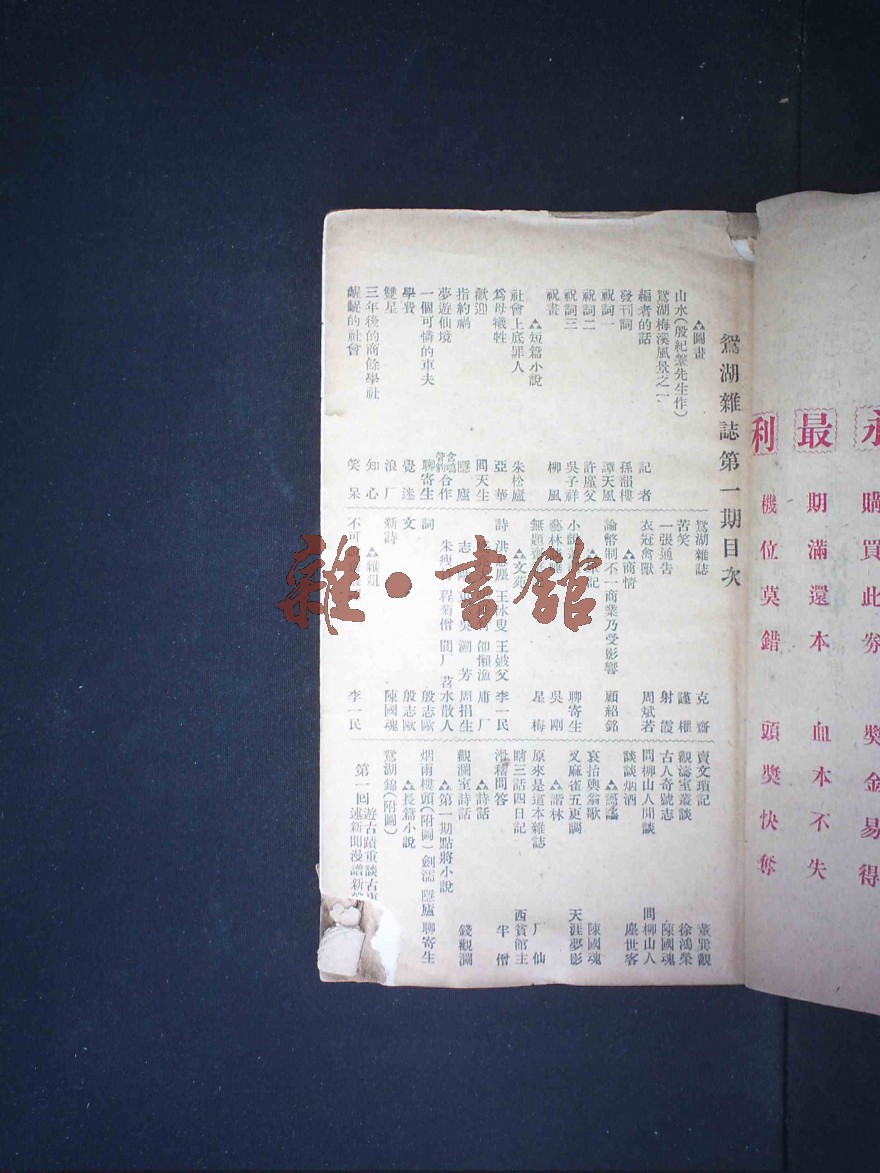 購買此券 獎金易得
最 期滿還本 血本不失
利 機位莫錯 頭獎快奪
鴛湖雜誌第一期目次
圖畫
山水(殷紀絜先生作)
鴛湖梅溪風景之一
編者的話 記者
發刊詞 孫韻樓
祝詞一 譚天風
祝詞二 許盧父
祝詞三 吳子祥
祝畫 柳風
短篇小說
社會上底罪人 朱松廬
爲母犧牲 亞華
歡迎 問天生
指約禍 廬
夢遊仙境 合作
一個可憐的車夫 聊寄生
學費 覺迷
雙星 浪厂
三年後的商餘學社 知心
齷齪的社會 笑呆
鴛湖雜誌 克齋
苦笑 謹權
一張通告 射霞
衣冠禽獸 周斌若
商情
論幣制不一商業乃受影響 顧紹銘
小說 聊寄生
藝林 吳剛
無題 星梅
文苑
詩 王詠叟 王妭父 李一民
卹懶漁 庸厂
志 芳 周捐生
朱 程菊僧 水散人
詞 殷志歐
文 殷志歐
新詩 陳國魂
雜俎
不可 李一民
賣文瑣記 董巽觀
觀濤室叢談 徐鴻榮
古人奇號志 陳國魂
問柳山人閒談 問柳山人
談談烟酒 塵世客
哀抬輿翁歌 陳國魂
叉麻雀五更調 天涯夢影
諧林
原來是這本雜誌 厂仙
瞎三話四日記 西賓館主
滑稽問答 半僧
詩話
觀瀾室詩話 錢觀瀾
第一期點將小說
烟雨樓頭(附圖) 劍濡 廬 聊寄生
長篇小說
鴛湖錦(附圖)
第一回 遊古蹟重談古 述新聞漫譜新
雜·書館